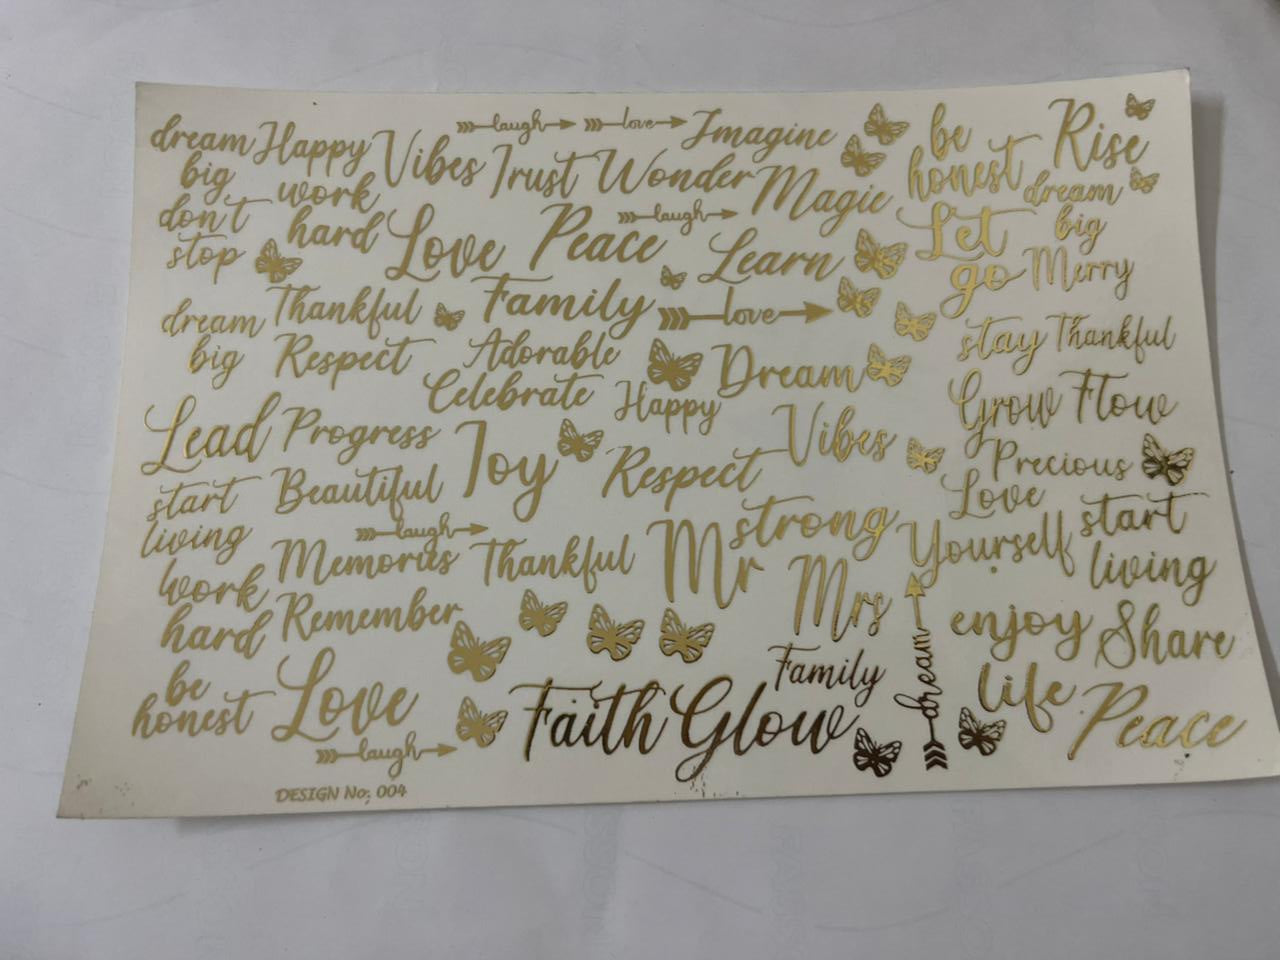 dream
big
don't
stop
Happy
work
hard
Vibes
laugh
love
Imagine
Trust
Wonder
Magic
be
honest
Rise
dream
big
Love
Peace
laugh
Learn
Let
go
Merry
dream
big
Thankful
Family
love
Respect
Adorable
Dream
stay
Thankful
Celebrate
Happy
Vibes
Grow
Flow
Lead
Progress
Joy
Respect
Precious
start
living
Beautiful
laugh
Love
Yourself
start
living
Memories
Thankful
Mr
strong
Mrs
work
hard
Remember
enjoy
life
Share
be
honest
Love
Family
dream
Faith
Glow
Peace
laugh
DESIGN No: 004